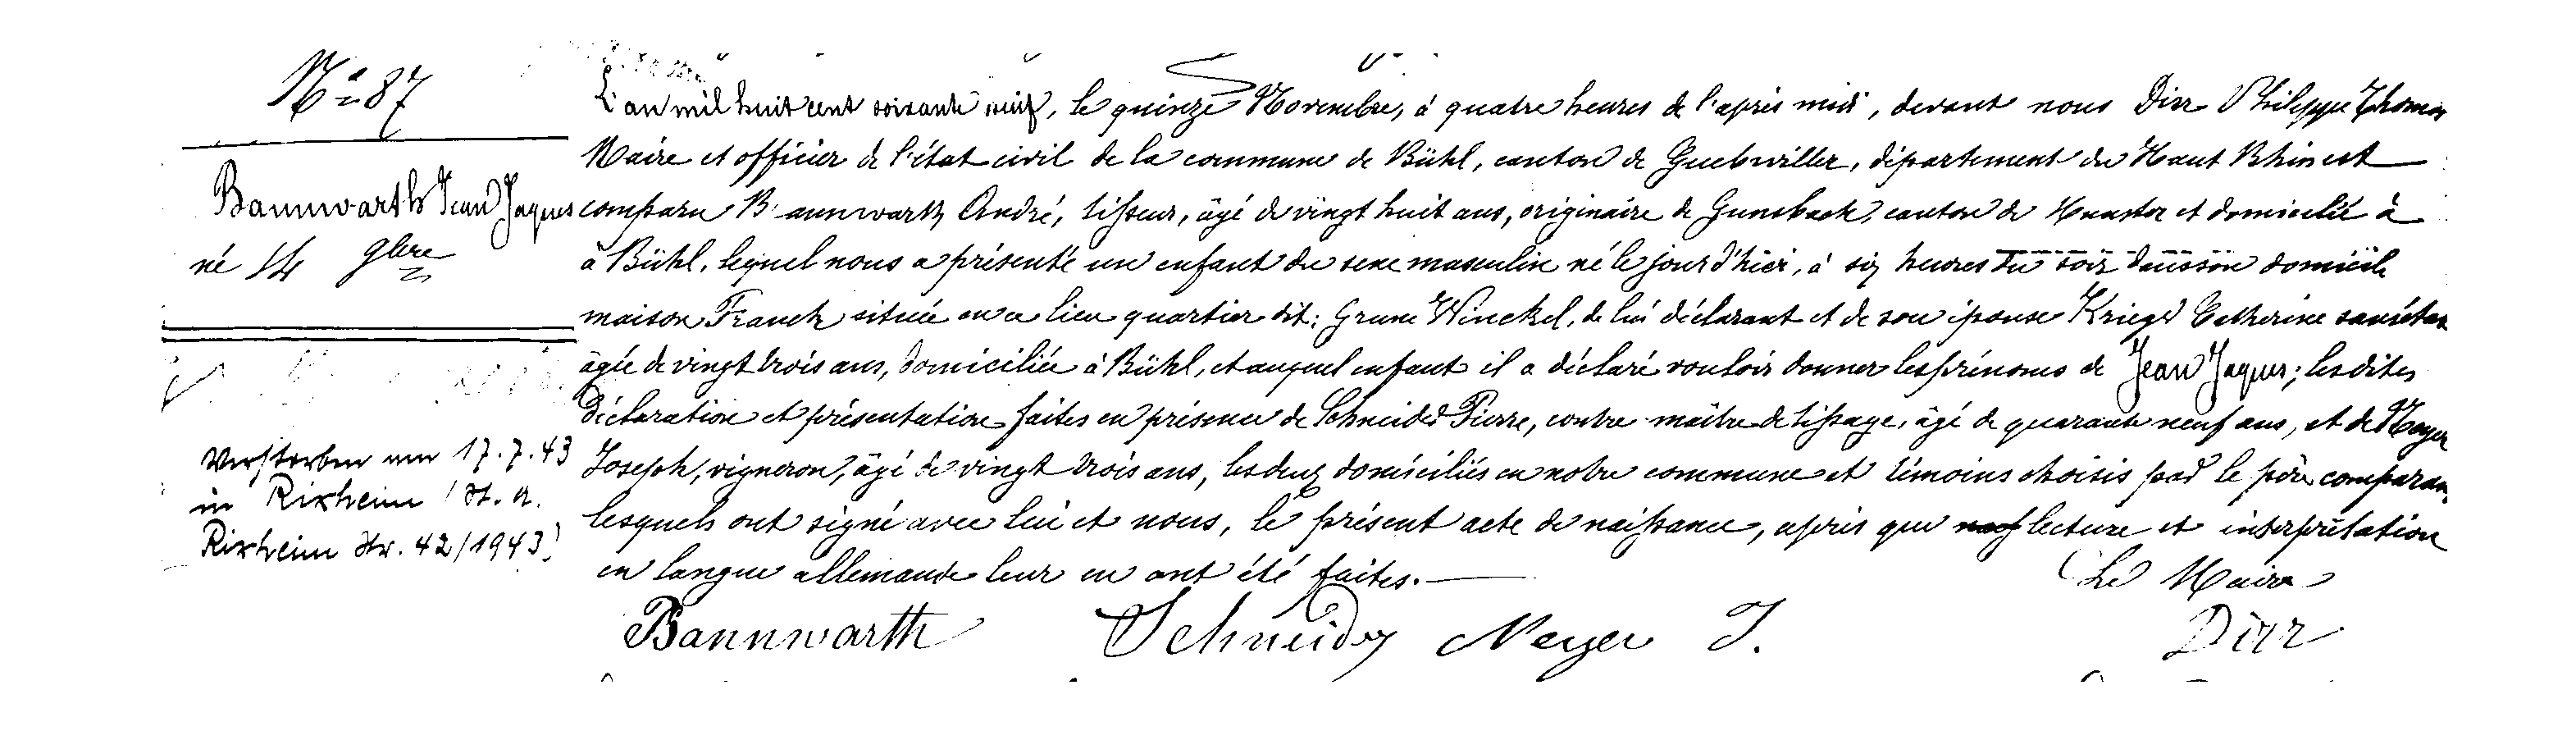 Nº 87
Bannwarth Jean Jaques
né 14 9bre
Verstorben am 17.7.43
in Rixheim (St. A.
Rixheim Nr. 42/1943)
L'an mil huit cent soixante neuf, le quinze Novembre, à quatre heures de l'après midi, devant nous Dirr Philippe Thomas
Maire et officier de l'état civil de la commune de Bühl, canton de Guebwiller, département du Haut Rhin est
comparu Bannwarth André, tisseur, âgé de vingt huit ans, originaire de Gunsbach, canton de Munster et domicilié à
à Bühl, lequel nous a présenté un enfant du sexe masculin né le jour d'hier, à six heures du soir dans son domicile
maison Franck située en ce lieu quartier dit: Grune Winckel, de lui déclarant et de son épouse Krieger Catherine sans état
âgée de vingt trois ans, domiciliée à Bühl, et auquel enfant il a déclaré vouloir donner les prénoms de Jean Jaques; les dites
déclaration et présentation faites en présence de Schneider Pierre, contre-maître de tissage, âgé de quarante neuf ans, et de Meyer
Joseph, vigneron, âgé de vingt trois ans, les deux domiciliés en notre commune et témoins choisis par le père comparant,
lesquels ont signé avec lui et nous, le présent acte de naissance, après que lecture et interprétation
en langue allemande leur en ont été faites.
Le Maire
Bannwarth Schneider Meyer J. Dirr